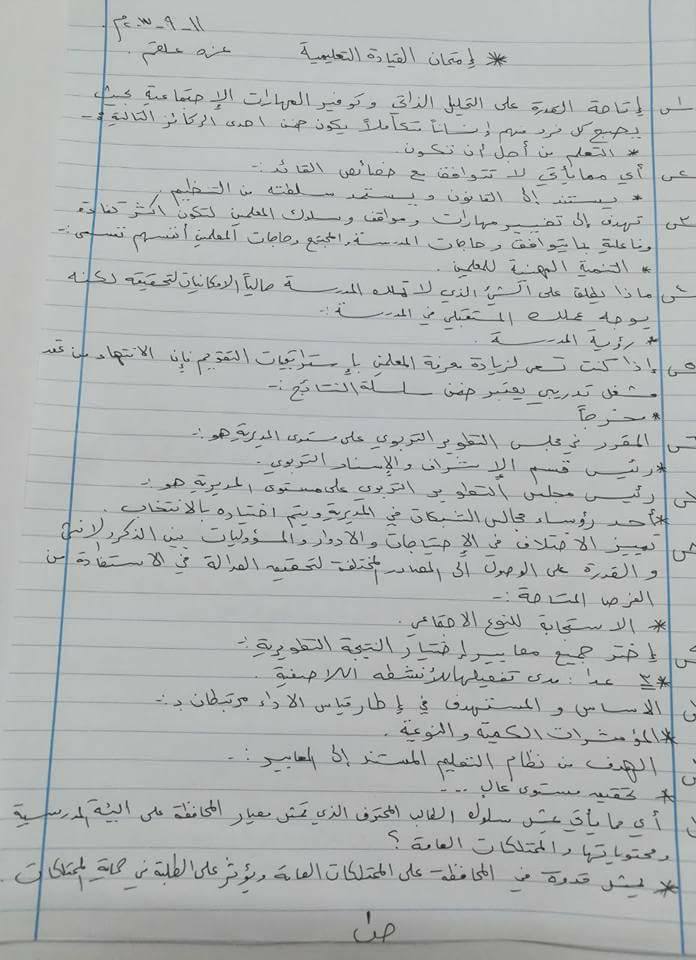 ١١-٩-٢٠٢٣م.
* إمتحان القيادة التعليمية عزه علقم.
س١ إتاحة القدرة على التحليل الذاتي وتوفير المهارات الإجتماعية بحيث
يصبح كل فرد منهم إنساناً متكاملاً يكون ضمن احدى الركائز التالية:-
* التعلم من أجل أن تكون.
س٢ أي مما يأتي لا تتوافق مع خصائص القائد:-
* يستند إلى القانون ويستمد سلطته من التنظيم.
س٣ تهدف إلى تغيير مهارات ومواقف وسلوك المعلمين لتكون أكثر كفاءة
وفاعلية بما يتوافق وحاجات المدرسة والمجتمع وحاجات المعلمين أنفسهم تسمى:-
* التنمية المهنية للمعلمين.
س٤ ماذا يطلق على الشئ الذي لا تملك المدرسة حالياً الإمكانيات لتحقيقه لكنه
يوجه عملك المستقبلي في المدرسة:-
* رؤية المدرسة.
س٥ إذا كنت تسعى لزيادة معرفة المعلمين بإستراتيجيات التقويم فإن الانتهاء من عقد
مشغل تدريبي يعتبر ضمن سلسلة النتائج:-
* مخرجاً
س٦ المقرر في مجلس التطوير التربوي على مستوى المديرية هو:-
* رئيس قسم الإشراف والإسناد التربوي.
س٧ رئيس مجلس التطوير التربوي على مستوى المديرية هو:-
* أحد رؤساء مجالس الشبكات في المديرية ويتم اختياره بالانتخاب.
س٨ تمييز الاختلاف في الإحتياجات والأدوار والمسؤوليات بين الذكر والانثى
و القدرة على الوصول إلى المصادر المختلفة لتحقيق العدالة في الاستفادة من
الفرص المتاحة:-
* الاستجابة للنوع الاجتماعي.
إختر جميع معايير إختيار النتيجة التطويرية:-
* عدا: مدى تفعيلها للأنشطه اللاصفية.
الاساس والمستهدف في إطار قياس الاداء مرتبطان بـ:-
* المؤشرات الكمية والنوعية.
الهدف من نظام التعليم المستند إلى المعايير:-
* تحقيق مستوى عالٍ ...
أي مما يأتي يمثل سلوك الطالب المحترف الذي يمثل معيار المحافظة على البيئة المدرسية
ومحتوياتها والممتلكات العامة؟
* يمثل قدوة في المحافظة على الممتلكات العامة ويؤثر على الطلبة في حماية الممتلكات.
ص١